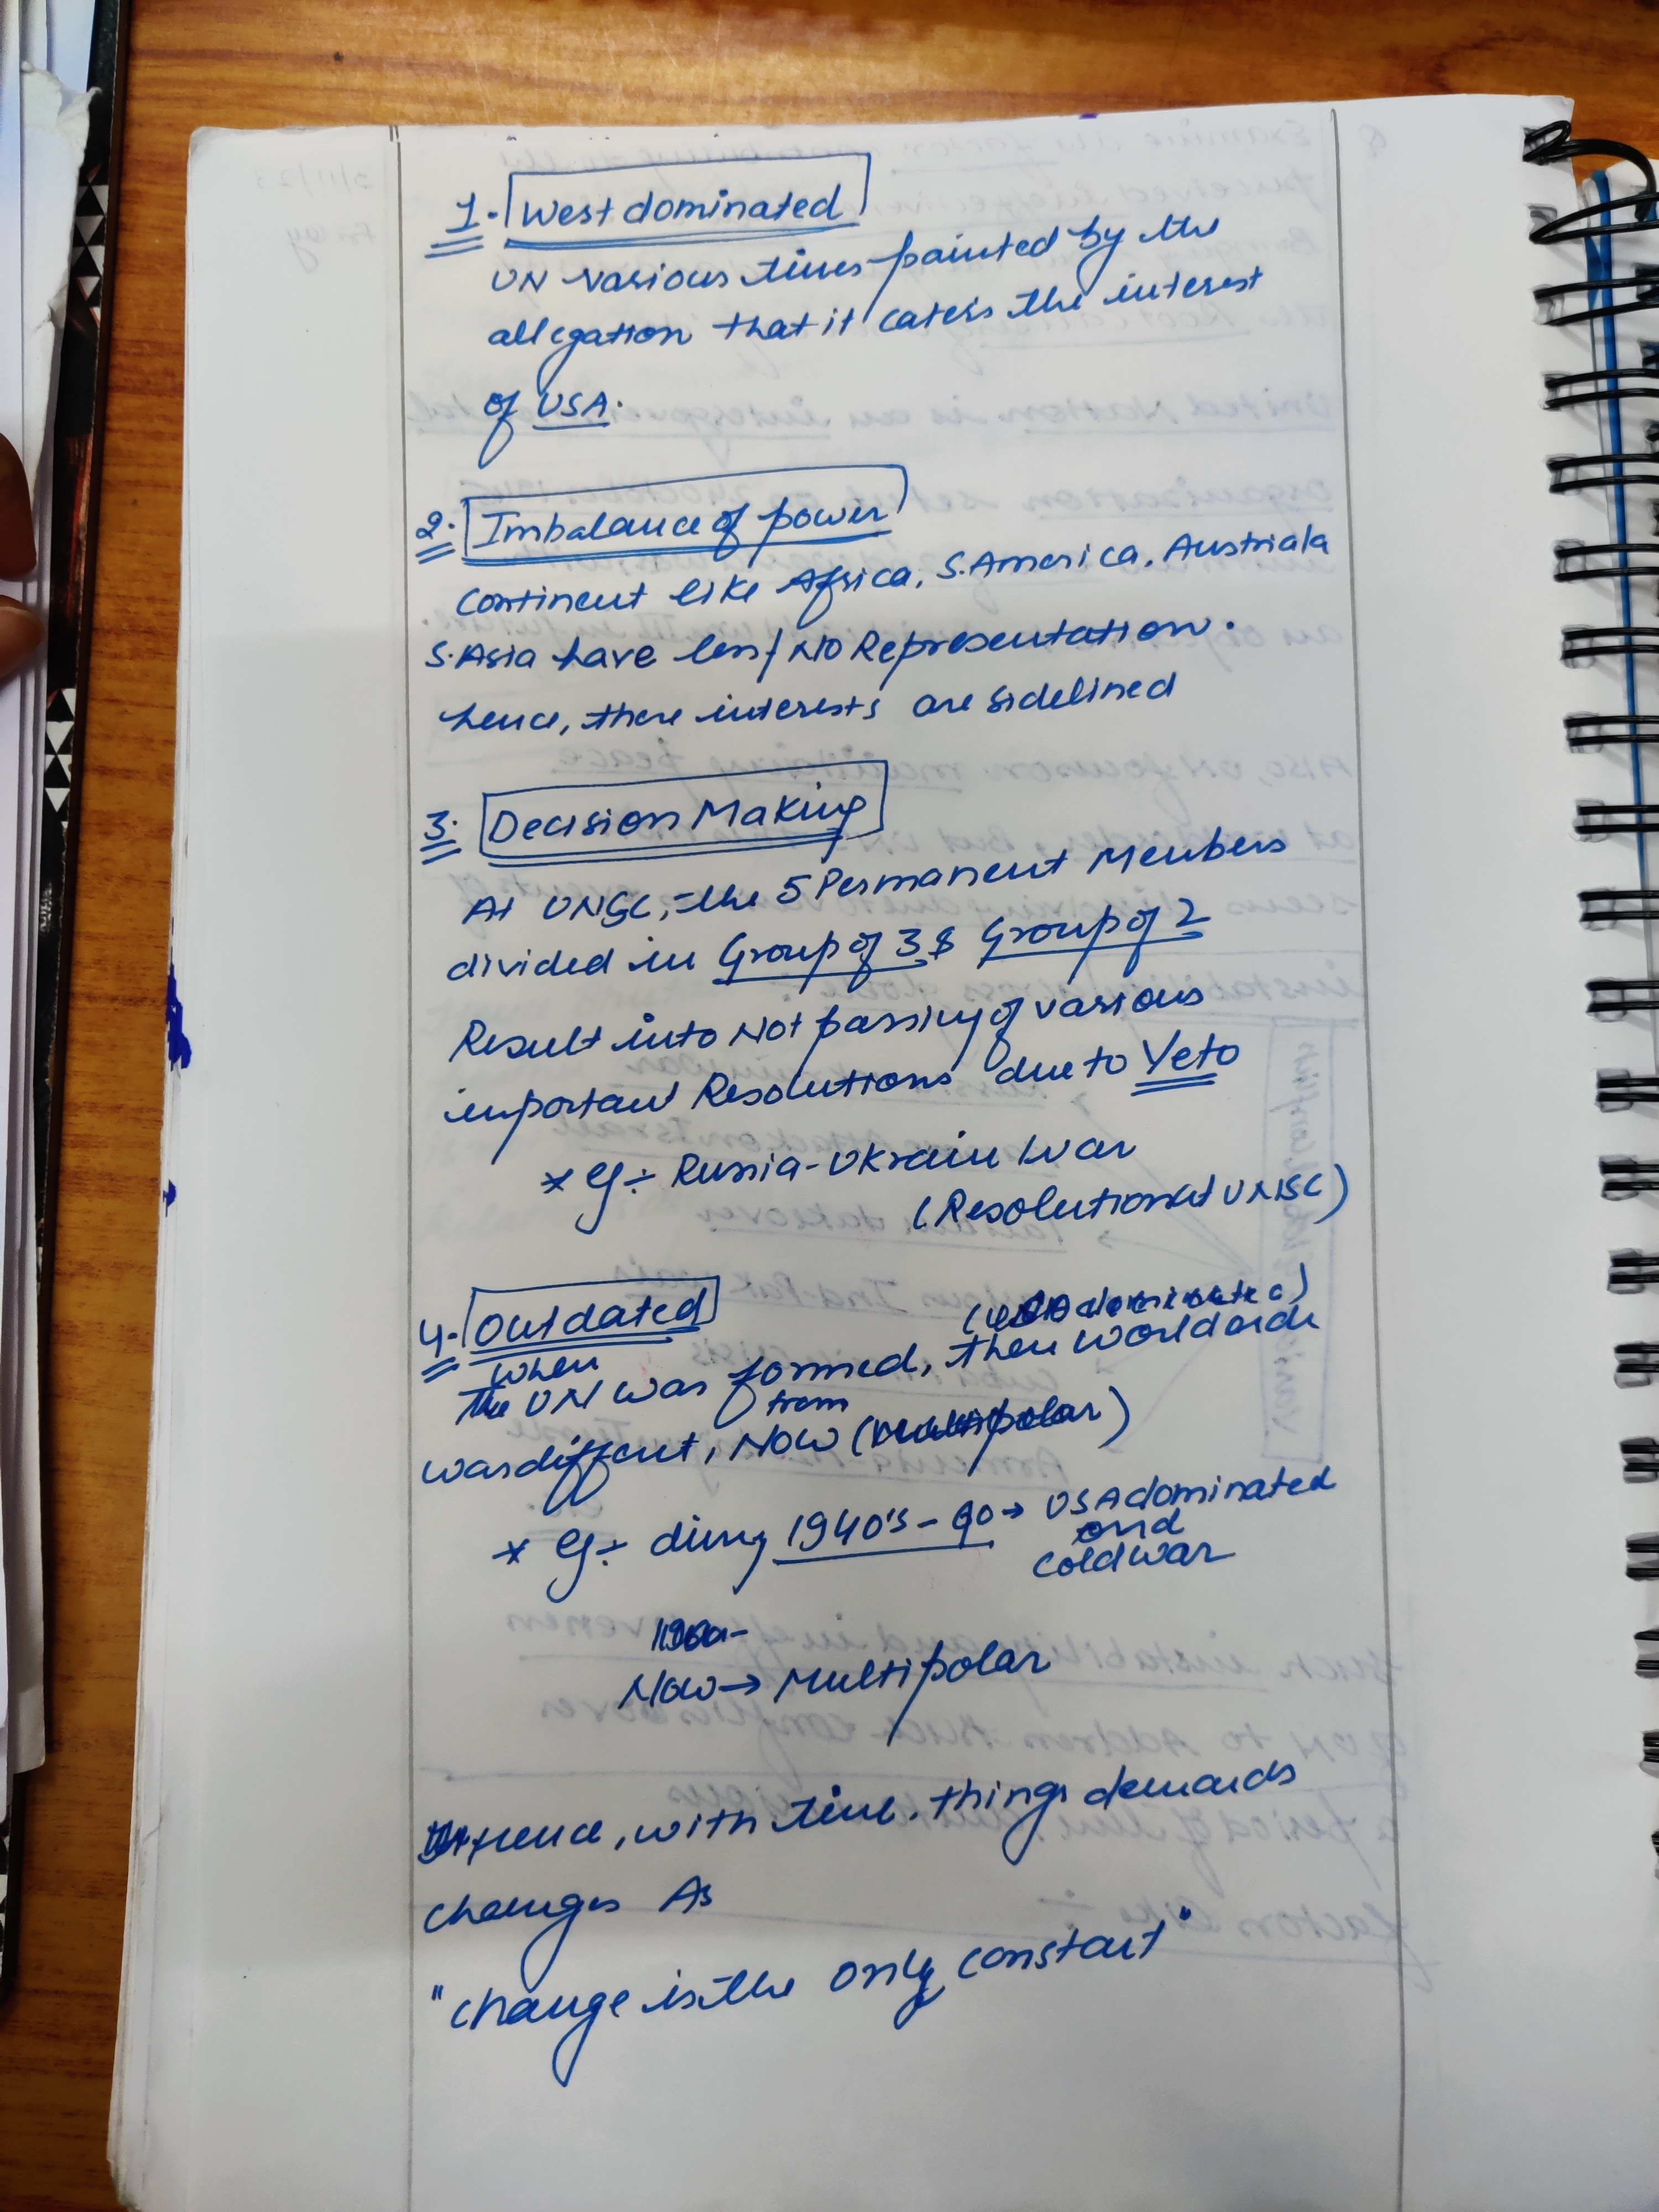 1. West dominated
UN various times painted by the
allegation that it caters the interest
of USA.
2. Imbalance of power
Continent like Africa, S.America, Austriala
S.Asia have less/ NO Representation.
hence, there interests are sidelined
3. Decision Making
At UNSC, the 5 Permanent Members
divided in Group of 3 & Group of 2
Result into Not passing of various
important Resolutions due to Veto
* eg ÷ Russia-Ukrain War
(Resolution at UNSC)
4. Outdated
(USA dominated)
When
The UN was formed, then World orde
from
was diffent, NOW (Multipolar)
* eg ÷ diing 1940's - 90 → USA dominated
and
cold war
Now → Multipolar
Hence, with time, things demands
changes As
"change is the only constant"